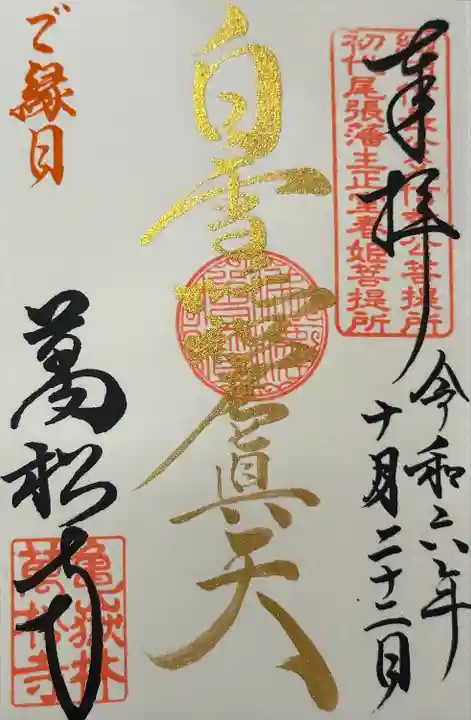 奉拝
令和六年
十月二十二日
初代尾張藩主正室春姫菩提所
白雪吒枳眞天
ご縁日
萬松寺
亀嶽林
萬松寺